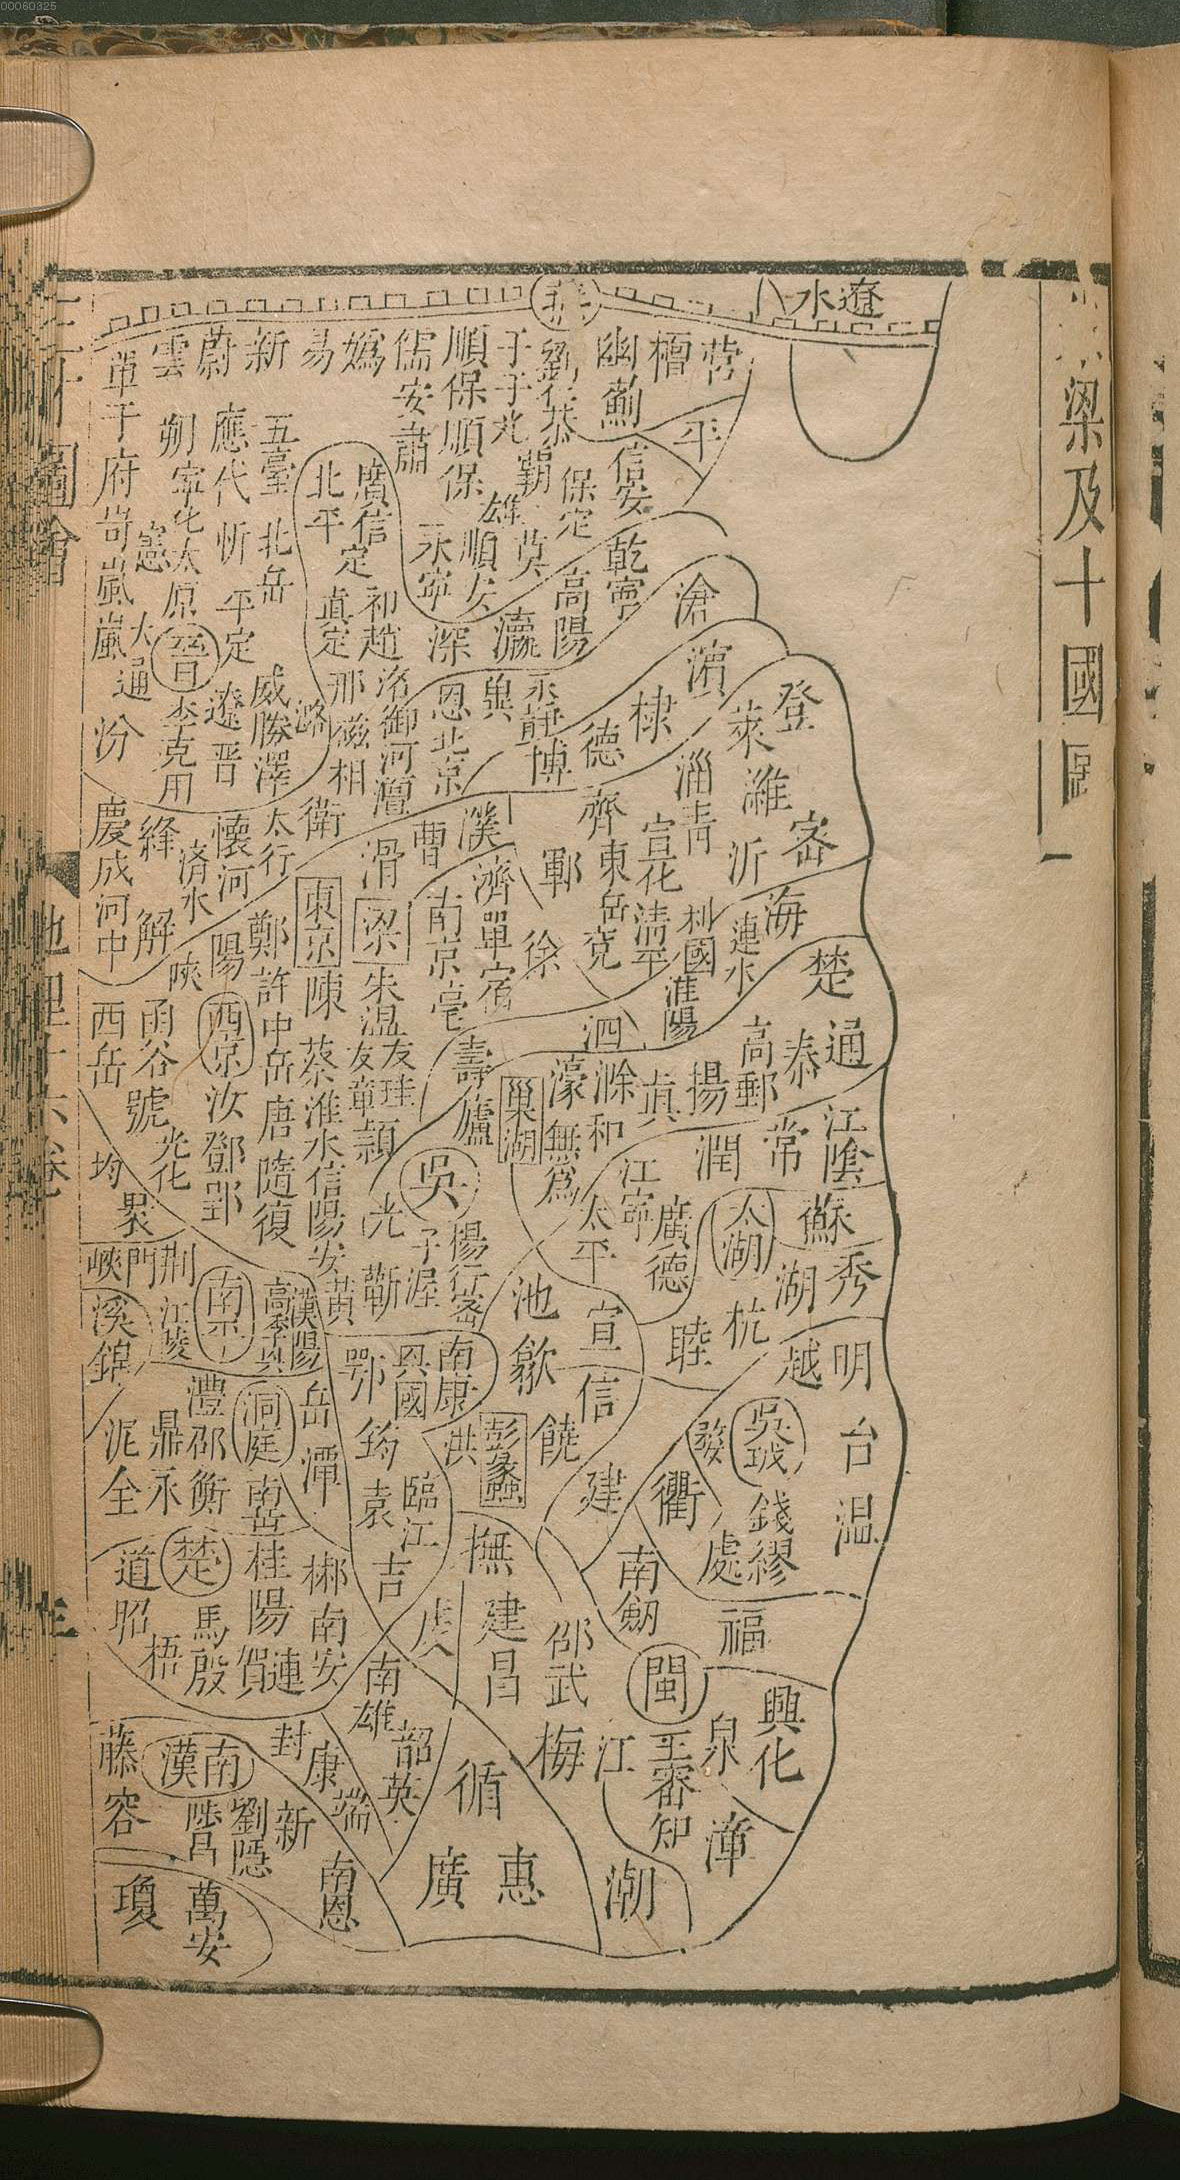 00060325
梁及十國圖
三才圖會
地理十六卷
遼水
營
平
檀
幽薊
信安
劉仁恭
霸
保定
雄
莫
乾寧
高陽
瀛
順保順保
儒安肅
永寧
順安
深
媯
易
新
蔚
雲
單于府岢嵐嵐
朔寧化太原
應代忻平定
五臺北岳
憲
大通
汾
晉
李克用
遼晉
威勝澤
潞
北平
廣信定
真定
祁趙
洺御河澶
磁相
恩北京
博
德
棣
滄
濱
登
萊
濰
密
淄青
沂
齊東岳兗
宣化清平
鄆
濮
曹
滑
衛
太行
懷河陽
濟水
絳
慶成河中
解
陝
東京
梁
朱温
友珪
友
陳蔡淮水信陽安
鄭許中岳唐隨復
西京
汝鄧郢
函谷
虢
光化
西岳
均
南京亳
濟單宿
徐
利國
淮陽
漣水
海
楚
通
泰
高郵
揚
真
滁和
濠無為
泗
壽
廬
巢湖
潁
光
吳
楊行密
子渥
蘄
黃
江陰
常
潤
江寧
太平
廣德
太湖
蘇
秀
湖
杭
睦
宣
池
歙
信
饒
彭蠡
南康
興國
鄂
洪
筠
袁
臨江
吉
撫
建昌
邵武
建
南劒
福
明
越
台
温
吳越
錢繆
處
衢
婺
荆門
峽
江陵
漢陽
溪錦
澧
鼎
洞庭
岳
潭
衡
永
全
南岳
楚
馬殷
道昭
梧
桂陽
賀
連
郴南安
南雄
韶英
循
梅
江
閩
王審知
泉
興化
漳
潮
惠
廣
南漢
劉隱
陟昌
藤容
封
康
端
新
南恩
瓊
萬安